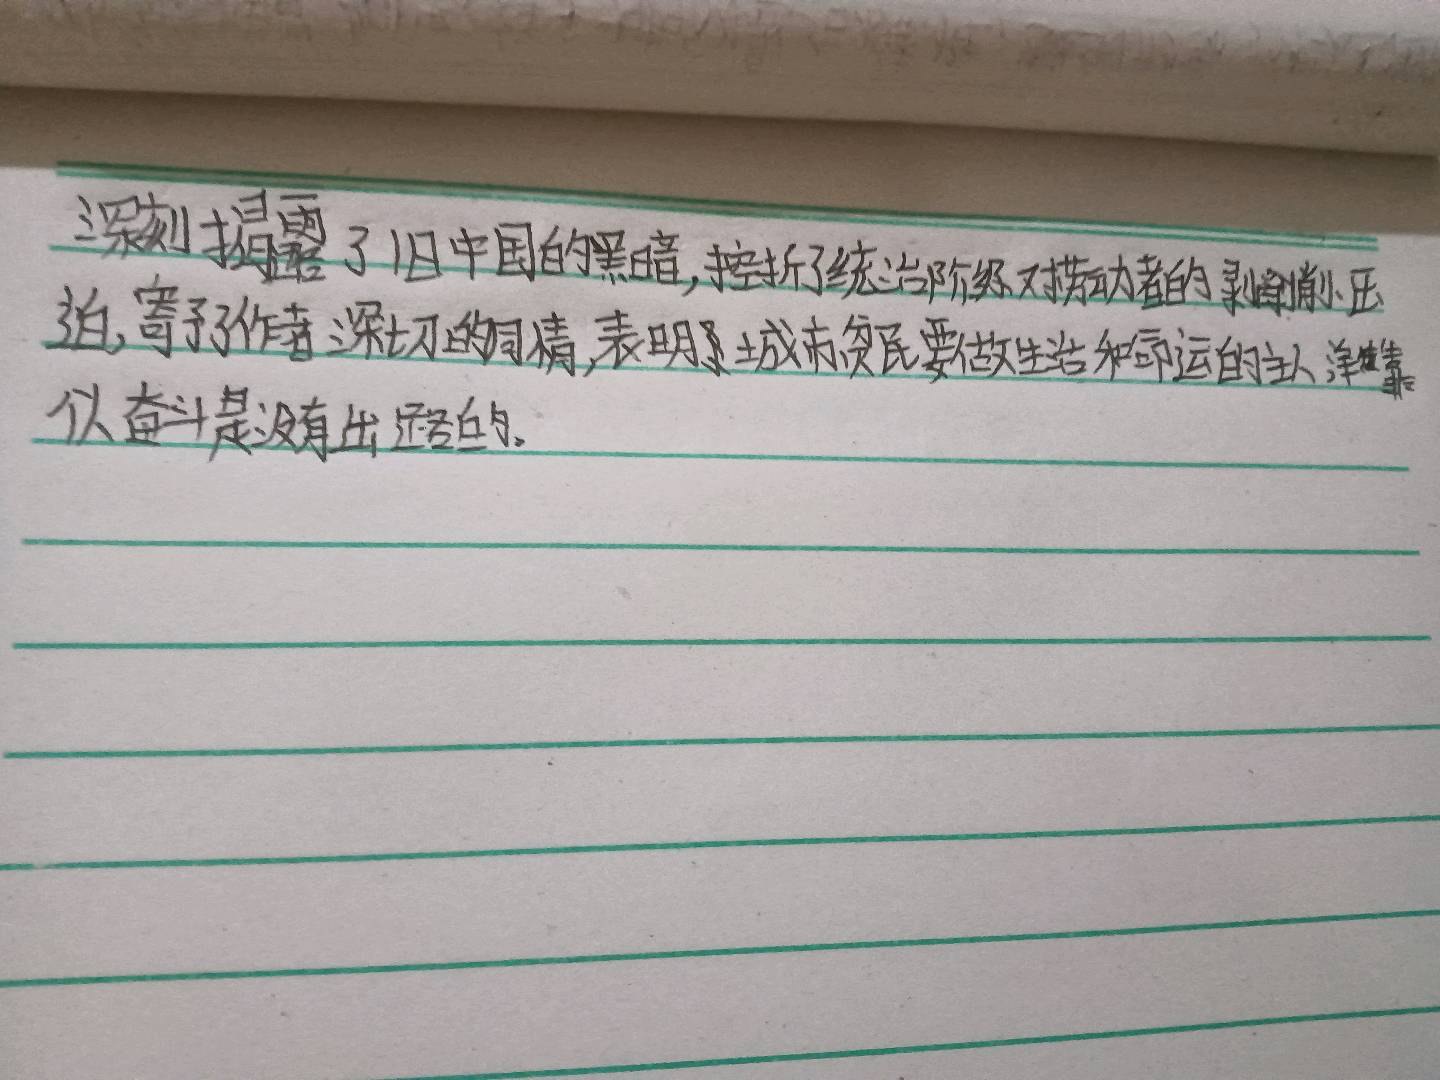 深刻揭露了旧中国的黑暗,控折了统治阶级对捞动者的剥削压
迫,寄予了作者深切的同情,表明了城市贫民要做生活和命运的主人洋靠
个人奋斗是没有出路的。